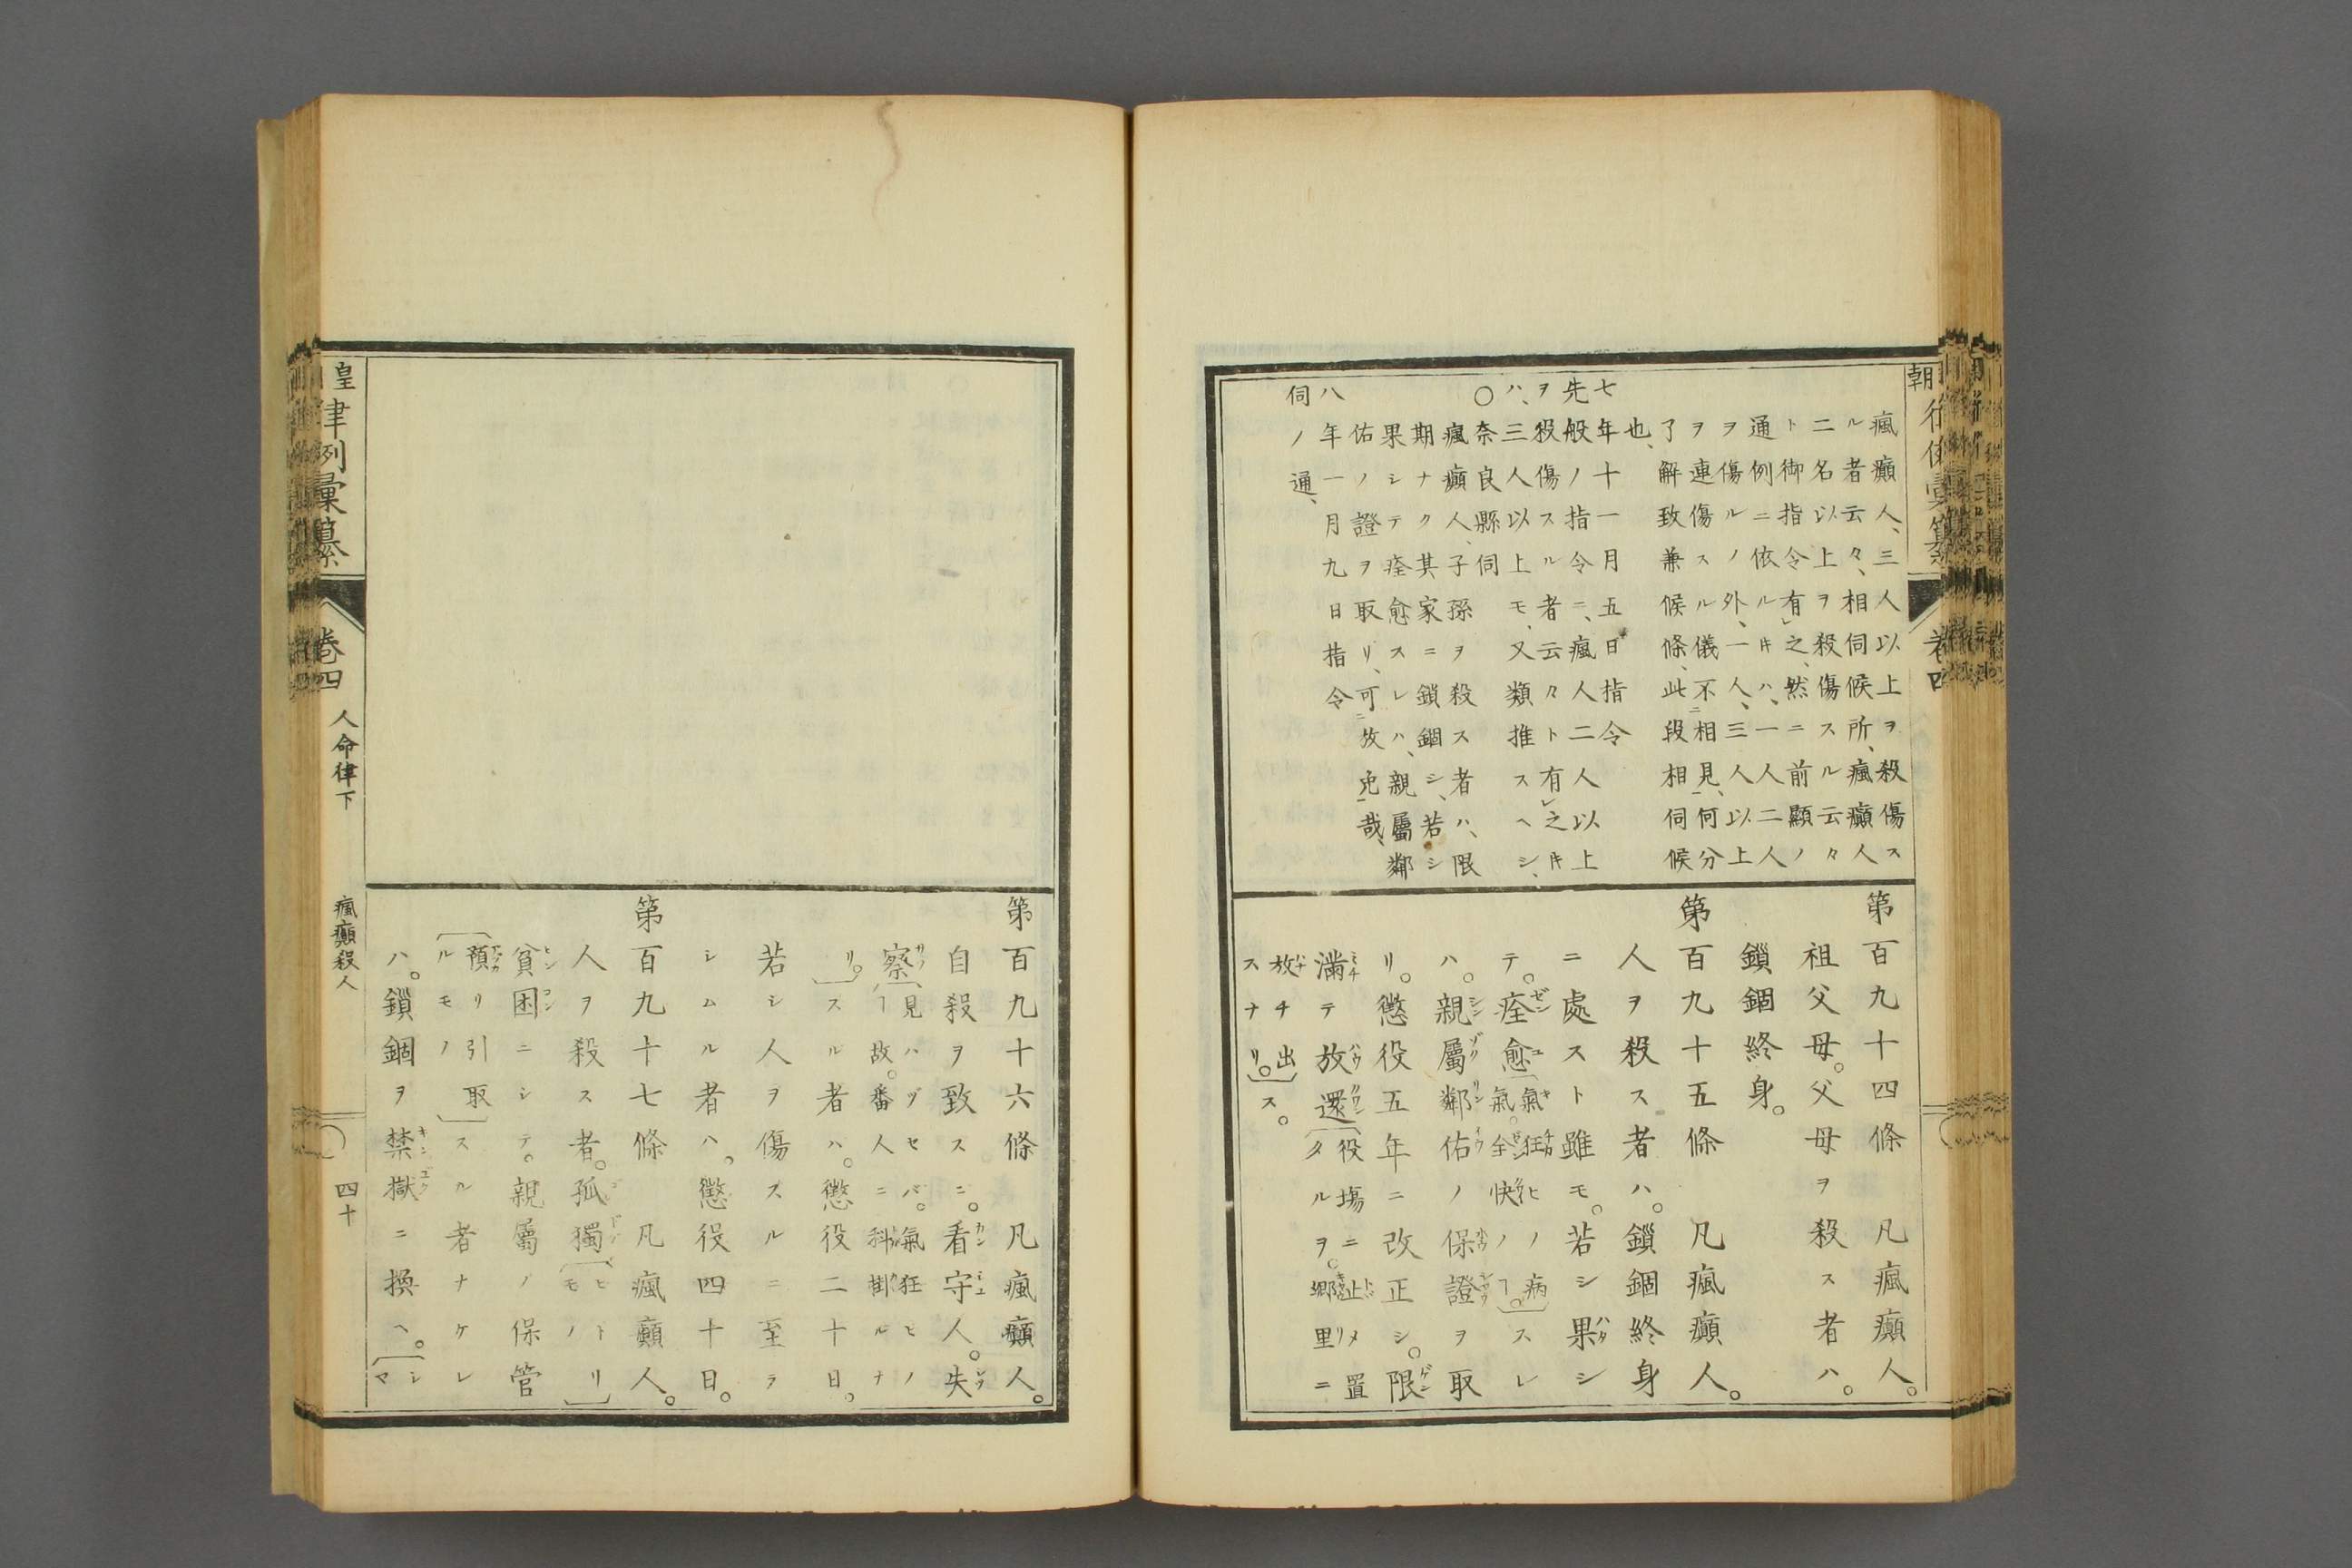 瘋癲人、三人以上ヲ殺傷ス
ル者云々、相伺候所、瘋癲人
二名以上ヲ殺傷スル云々
ト御指令有レ之、然ニ前顯ノ
通例ニ依ルキハ、一人二人
ヲ傷ルノ外、一人、三人以上
ヲ連傷スル儀不二相見一、何分
了解致兼候條、此段相伺候
也、
七年十一月五日指令
先般ノ指令ニ、瘋人二人以上
ヲ殺傷スル者云々ト有レ之キ
ハ、三人以上モ、又類推スヘシ、
○奈良縣伺
瘋癲人、子孫ヲ殺ス者ハ、限
期ナク其家ニ鎖錮シ、若シ
果シテ痊愈スレハ、親屬鄰
佑ノ證ヲ取リ、可二放免一哉、
八年一月九日指令
伺ノ通、
第百九十四條 凡瘋癲人。
祖父母。父母ヲ殺ス者ハ。
鎖錮終身。
第百九十五條 凡瘋癲人。
人ヲ殺ス者ハ。鎖錮終身
ニ處スト雖モ。若シ果シ
テ。痊愈氣狂ヒノ病氣。全快ノスレ
ハ。親屬鄰佑ノ保證ヲ取
リ。懲役五年ニ改正シ。限
滿テ放還役場ニ止メ置タルヲ。郷里ニ
放チ出スナリ。ス。
朝 律例彙纂 卷四
第百九十六條 凡瘋癲人。
自殺ヲ致スニ。看守人。失
察見ハヅセバ。氣狂ヒノ故。番人ニ科掛ルナ
リ。スル者ハ。懲役二十日。
若シ人ヲ傷スルニ至ラ
シムル者ハ。懲役四十日。
第百九十七條 凡瘋癲人。
人ヲ殺ス者。孤獨ヒトリモノ
貧困ニシテ。親屬ノ保管
預リ引取ルモノスル者ナケレ
ハ。鎖錮ヲ禁獄ニ換ヘ。シマ
皇 律例彙纂 卷四 人命律下 瘋癲殺人 四十